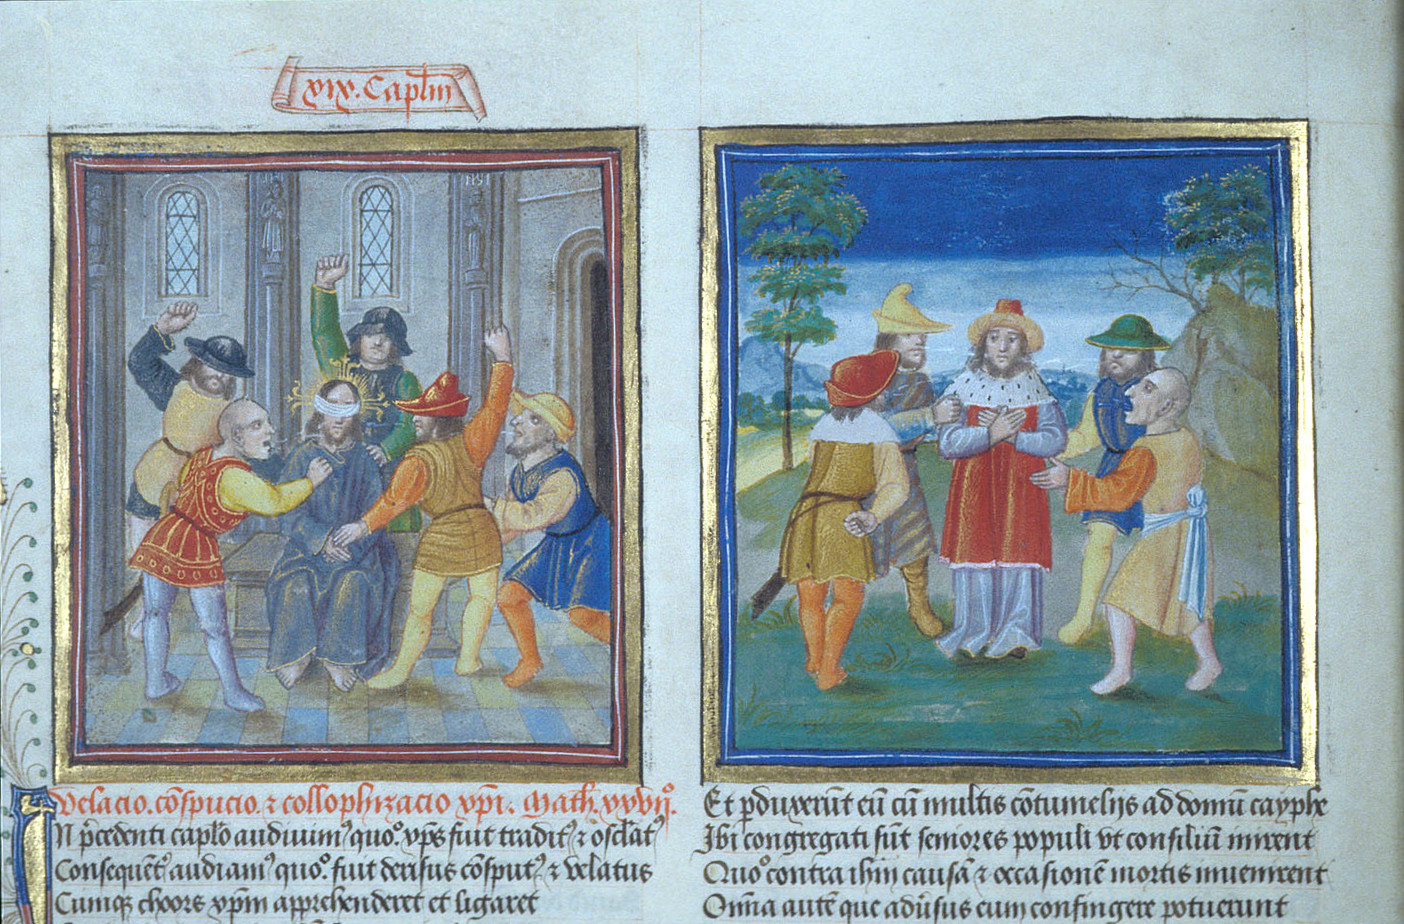 xix. Capłm
Velacio. cōspucio. ⁊ collophizacio xp̄i. Math. xxvii°.
IN p̄cedenti caplo audiuim᷒ quo° xp̄s fuit tradit᷒ ⁊ oscl̄at᷒
Consequent᷒ audiam᷒ quo°. fuit derisus cōsput᷒ ⁊ velatus
Cumq; choors xpm̄ apprehenderet et ligaret
Et pduxerūt eū cū multis cōtumelijs ad domū cayphe
Ibi congregati sūt seniores populi vt consiliū inirent
Quo° contra ihm̄ causā ⁊ occasionē mortis inuenirent
Omīa autē que adūsus eum confingere potuerunt